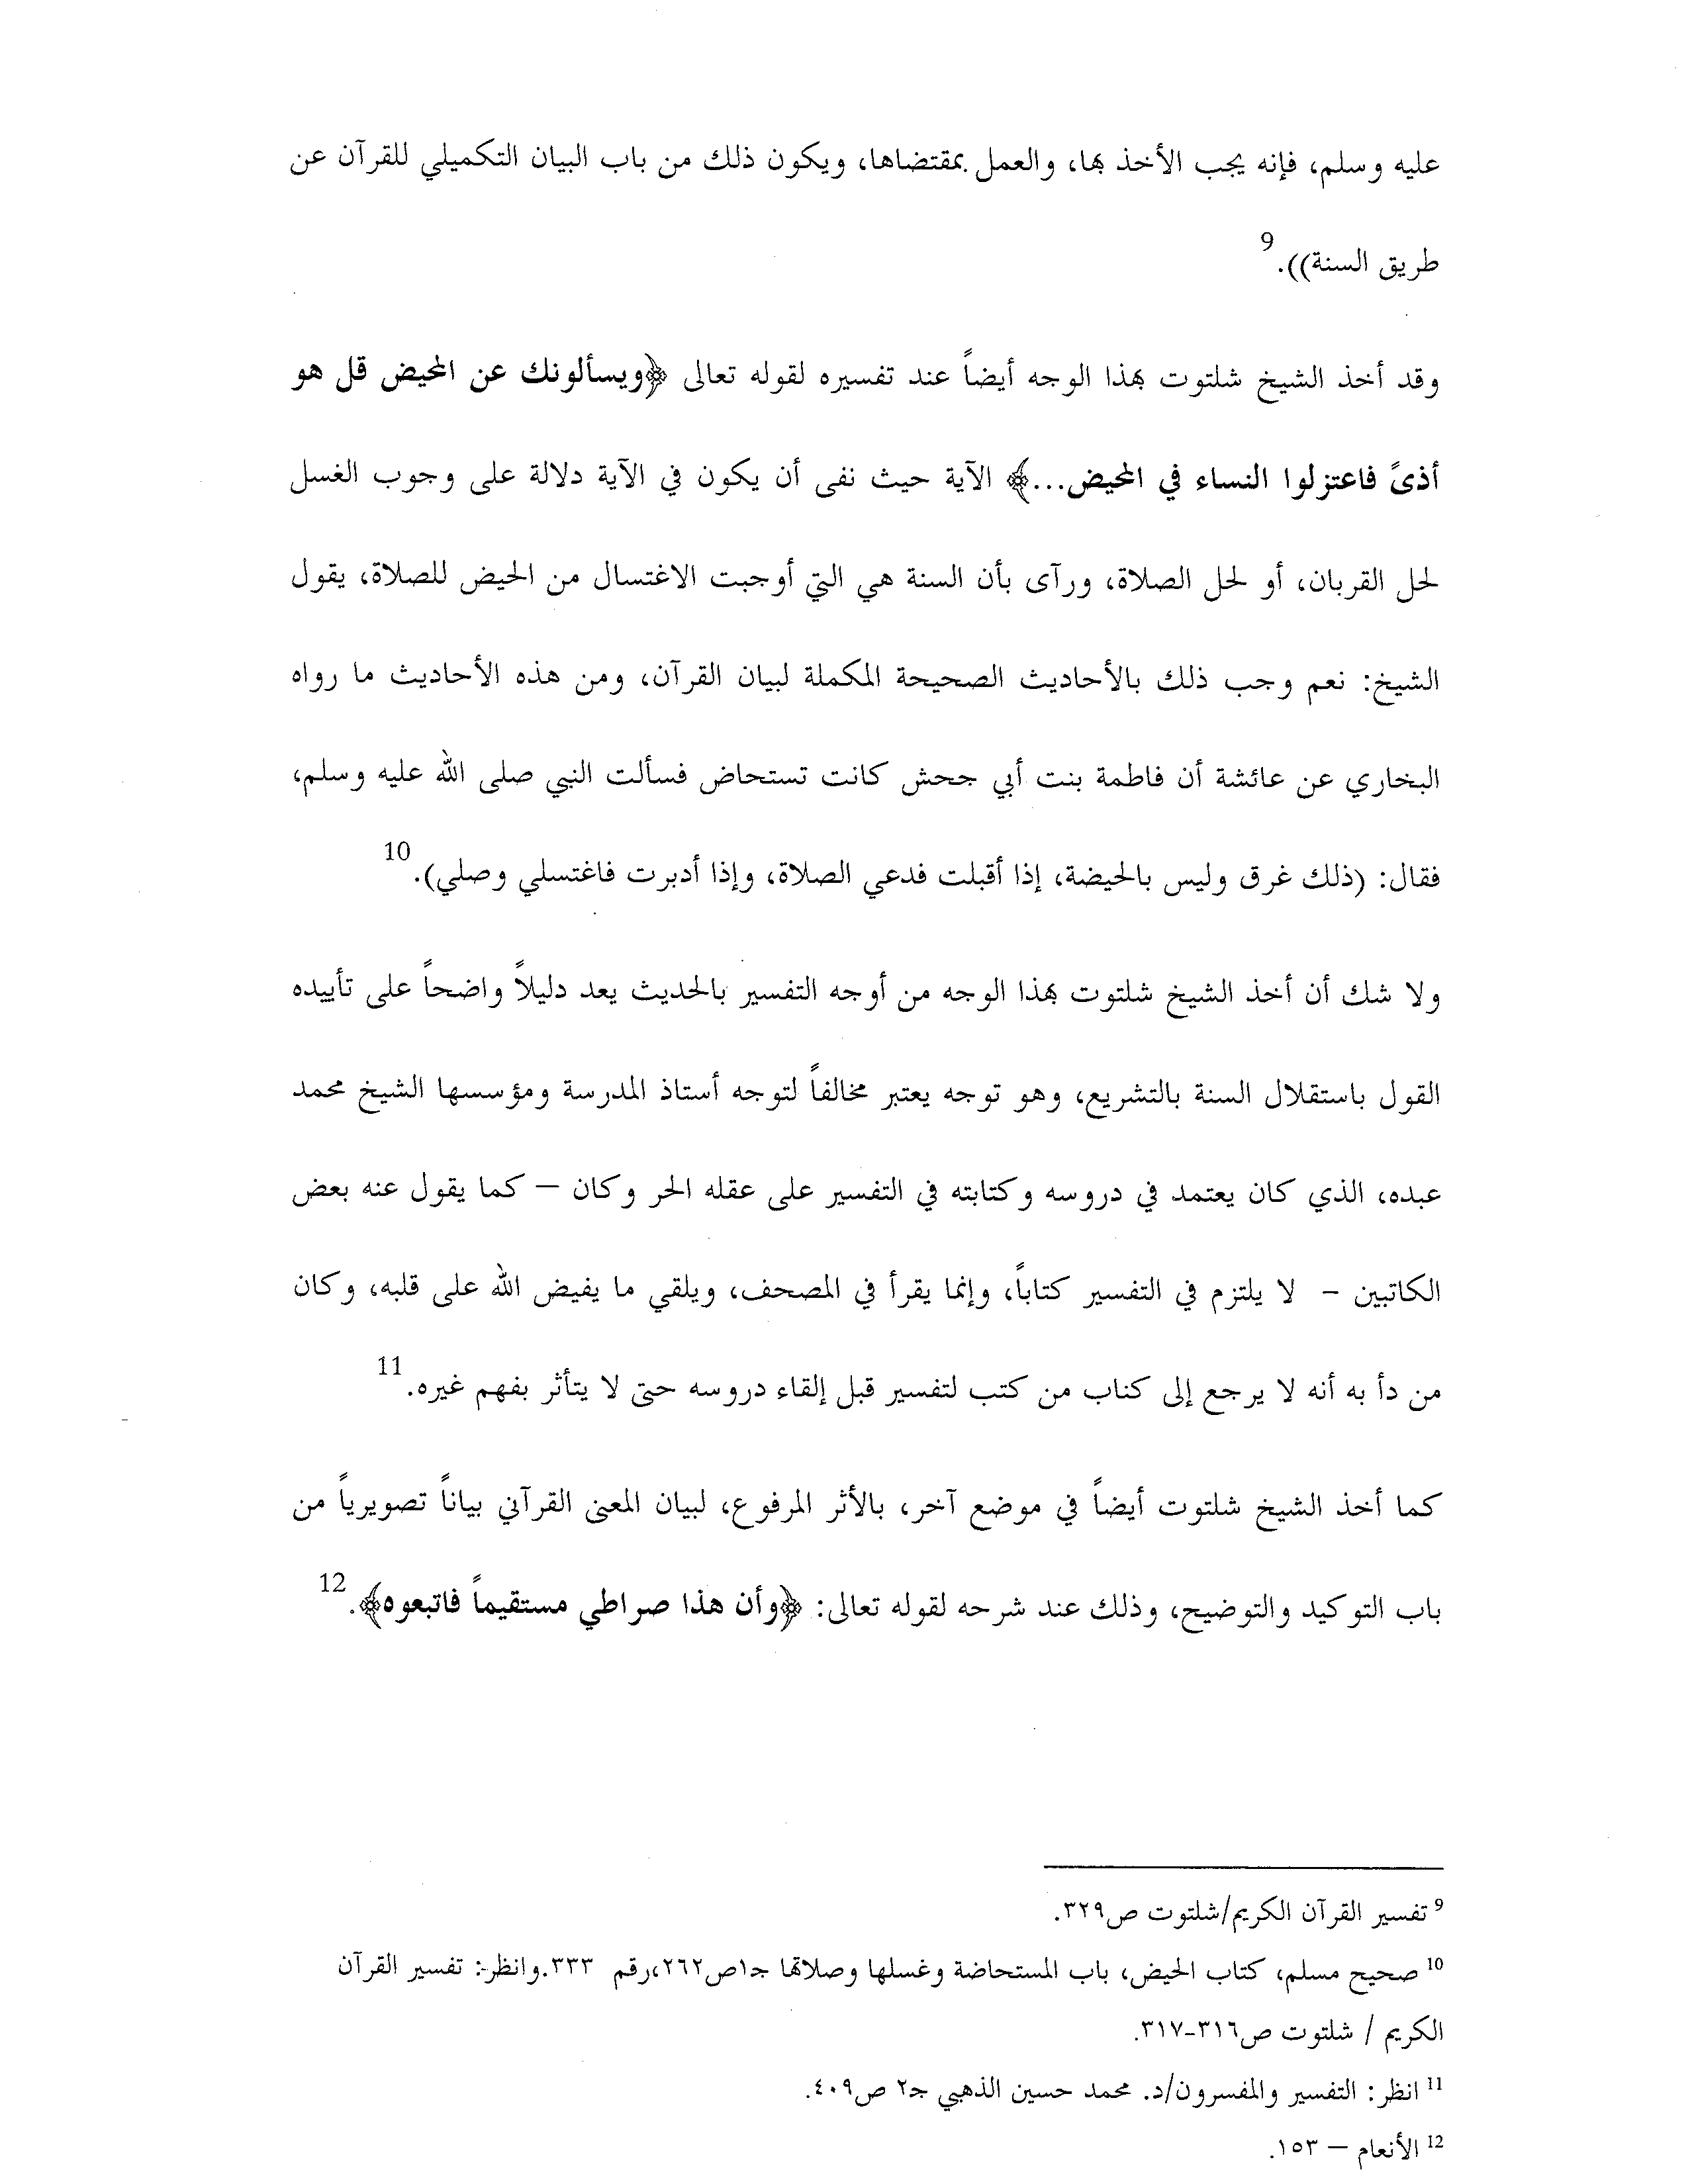 عليه وسلم، فإنه يجب الأخذ بها، والعمل بمقتضاها، ويكون ذلك من باب البيان التكميلي للقرآن عن
طريق السنة)).9
وقد أخذ الشيخ شلتوت بهذا الوجه أيضاً عند تفسيره لقوله تعالى ﴿ويسألونك عن المحيض قل هو
أذىً فاعتزلوا النساء في المحيض...﴾ الآية حيث نفى أن يكون في الآية دلالة على وجوب الغسل
لحل القربان، أو لحل الصلاة، ورآى بأن السنة هي التي أوجبت الاغتسال من الحيض للصلاة، يقول
الشيخ: نعم وجب ذلك بالأحاديث الصحيحة المكملة لبيان القرآن، ومن هذه الأحاديث ما رواه
البخاري عن عائشة أن فاطمة بنت أبي جحش كانت تستحاض فسألت النبي صلى الله عليه وسلم،
فقال: (ذلك غرق وليس بالحيضة، إذا أقبلت فدعي الصلاة، وإذا أدبرت فاغتسلي وصلي).10
ولا شك أن أخذ الشيخ شلتوت بهذا الوجه من أوجه التفسير بالحديث يعد دليلاً واضحاً على تأييده
القول باستقلال السنة بالتشريع، وهو توجه يعتبر مخالفاً لتوجه أستاذ المدرسة ومؤسسها الشيخ محمد
عبده، الذي كان يعتمد في دروسه وكتابته في التفسير على عقله الحر وكان – كما يقول عنه بعض
الكاتبين – لا يلتزم في التفسير كتاباً، وإنما يقرأ في المصحف، ويلقي ما يفيض الله على قلبه، وكان
من دأ به أنه لا يرجع إلى كناب من كتب لتفسير قبل إلقاء دروسه حتى لا يتأثر بفهم غيره.11
كما أخذ الشيخ شلتوت أيضاً في موضع آخر، بالأثر المرفوع، لبيان المعنى القرآني بياناً تصويرياً من
باب التوكيد والتوضيح، وذلك عند شرحه لقوله تعالى: ﴿وأن هذا صراطي مستقيماً فاتبعوه﴾.12
9 تفسير القرآن الكريم/شلتوت ص٣٢٩.
10 صحيح مسلم، كتاب الحيض، باب المستحاضة وغسلها وصلاتها جـ١ص٢٦٢،رقم ٣٣٣.وانظر: تفسير القرآن
الكريم / شلتوت ص٣١٦-٣١٧.
11 انظر: التفسير والمفسرون/د. محمد حسين الذهبي جـ٢ ص٤٠٩.
12 الأنعام – ١٥٣.